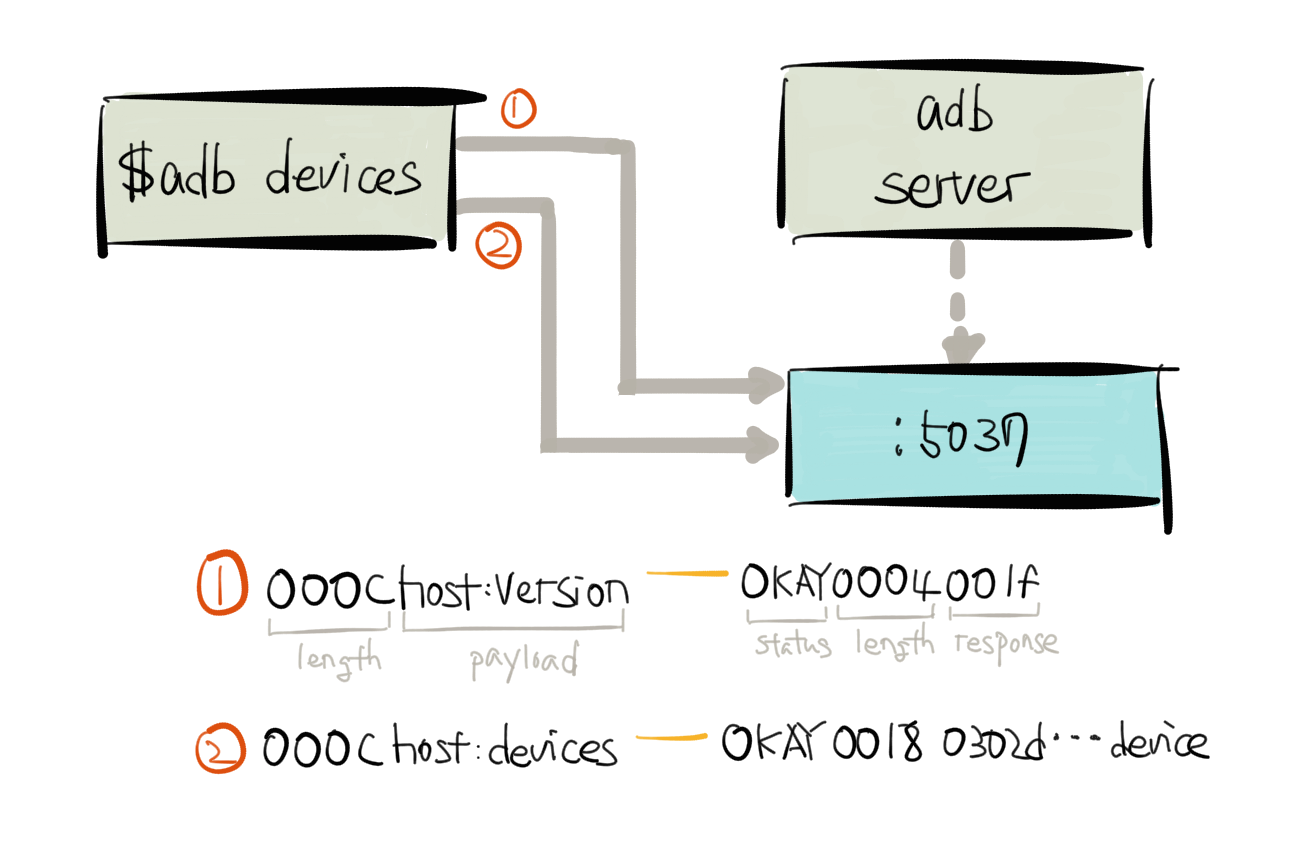 ①
$adb devices
②
adb
server
:5037
① 000Chost:version — OKAY0004001f
length payload status length response
② 000Chost:devices — OKAY00180302d···device